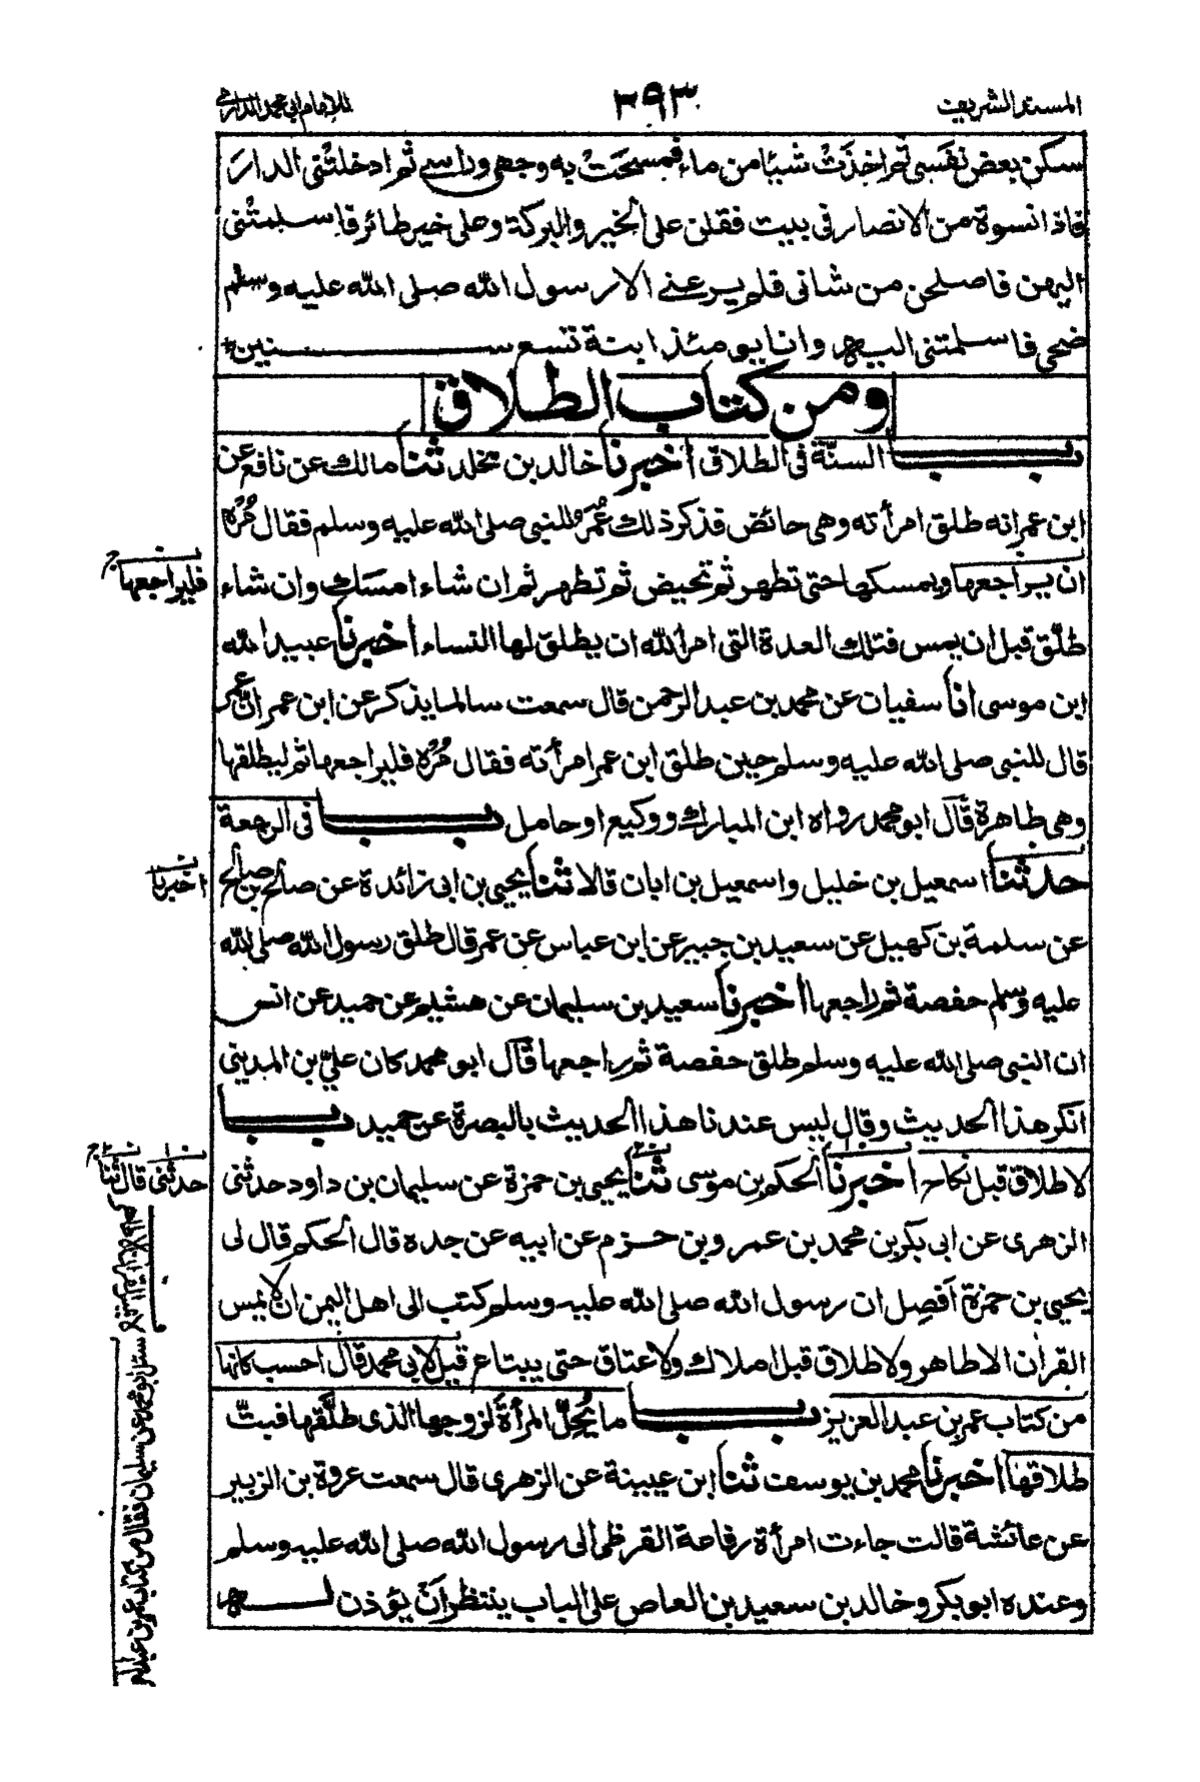 المسند الشريف ٢٩٣ للإمام ابي محمد الدارمي
سكن بعض نفسي ثم اخذَتْ شيئا من ماء فمسحَتْ به وجهي وراسي ثم ادخلتْني الدارَ
فاذا نسوة من الانصار في بيت فقلن على الخير والبركة وعلى خير طائر فاسلمتْني
اليهن فاصلحن من شاني فلم يرعني الا رسول الله صلى الله عليه وسلم
ضحى فاسلمتني اليه وانا يومئذ ابنة تسع سنين
ومن كتاب الطلاق
باب السنّة في الطلاق اخبرنا خالد بن مخلد ثنا مالك عن نافع عن
ابن عمر انه طلق امرأته وهي حائض فذكر ذلك عُمَرُ للنبي صلى الله عليه وسلم فقال مُرْهُ
ان يراجعها ويمسكها حتى تطهر ثم تحيض ثم تطهر ثم ان شاء امسك وان شاء
فليراجعها
طلّق قبل ان يمس فتلك العدة التي امر الله ان يطلق لها النساء اخبرنا عبيد الله
ابن موسى انا سفيان عن محمد بن عبد الرحمن قال سمعت سالما يذكر عن ابن عمر انّ عمر
قال للنبي صلى الله عليه وسلم حين طلق ابن عمر امرأته فقال مُرْهُ فليراجعها ثم ليطلقها
وهي طاهرة قال ابو محمد رواه ابن المبارك ووكيع او حامل باب في الرجعة
حدثنا اسمعيل بن خليل واسمعيل بن ابان قالا ثنا يحيى بن ابي زائدة عن صالح بن صالح
اخبرنا
عن سلمة بن كهيل عن سعيد بن جبير عن ابن عباس عن عمر قال طلق رسول الله صلى الله
عليه وسلم حفصة ثم راجعها اخبرنا سعيد بن سليمان عن هشيم عن حميد عن انس
ان النبي صلى الله عليه وسلم طلق حفصة ثم راجعها قال ابو محمد كان عليّ بن المديني
انكر هذا الحديث وقال ليس عندنا هذا الحديث بالبصرة عن حميد باب
لا طلاق قبل نكاح اخبرنا الحكم بن موسى ثنا يحيى بن حمزة عن سليمان بن داود حدثني
حدثني قال ثنا
الزهري عن ابي بكر بن محمد بن عمرو بن حزم عن ابيه عن جده قال الحكم قال لي
يحيى بن حمزة اَفصِل ان رسول الله صلى الله عليه وسلم كتب الى اهل اليمن ان لا يمس
القرآن الا طاهر ولا طلاق قبل املاك ولا عتاق حتى يبتاع قيل لابي محمد قال احسب كانها
من كتاب عمر بن عبد العزيز باب ما يُحِلّ المرأةَ لزوجها الذي طلّقها فبتّ
طلاقها اخبرنا محمد بن يوسف ثنا ابن عيينة عن الزهري قال سمعت عروة بن الزبير
عن عائشة قالت جاءت امرأة رفاعة القرظي الى رسول الله صلى الله عليه وسلم
وعنده ابو بكر وخالد بن سعيد بن العاص على الباب ينتظر اَنْ يؤذن له
سئل ابو محمد عن سليمان فقال من كتاب عمر بن عبد